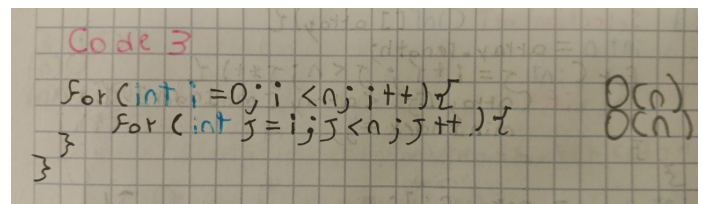 Code 3
for (int i =0; i <n; i++){ O(n)
for (int j = i; j <n; j ++){ O(n)
}
}